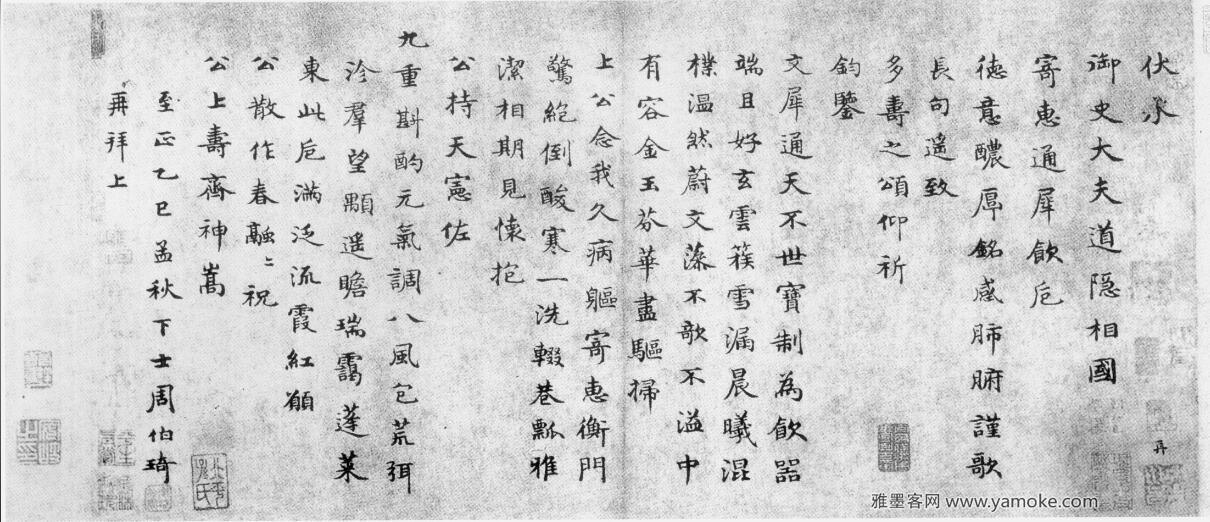 伏承
御史大夫道隱相國
寄惠通犀飲卮
德意醲厚銘感肺腑謹歌
長句遙致
多壽之頌仰祈
鈞鑒
文犀通天不世寶制為飲器
端且好玄雲簇雪漏晨曦混
樸溫然蔚文藻不歌不溢中
有容金玉芬華盡驅掃
上公念我久病軀寄惠衡門
驚絕倒酸寒一洗輟巷瓢雅
潔相期見懷抱
公持天憲佐
九重斟酌元氣調八風包荒弭
沴羣望顒遙瞻瑞靄蓬萊
東此卮滿泛流霞紅願
公散作春融〻祝
公上壽齊神嵩
至正乙巳孟秋下士周伯琦
再拜上
再
雅墨客网 www.yamoke.com